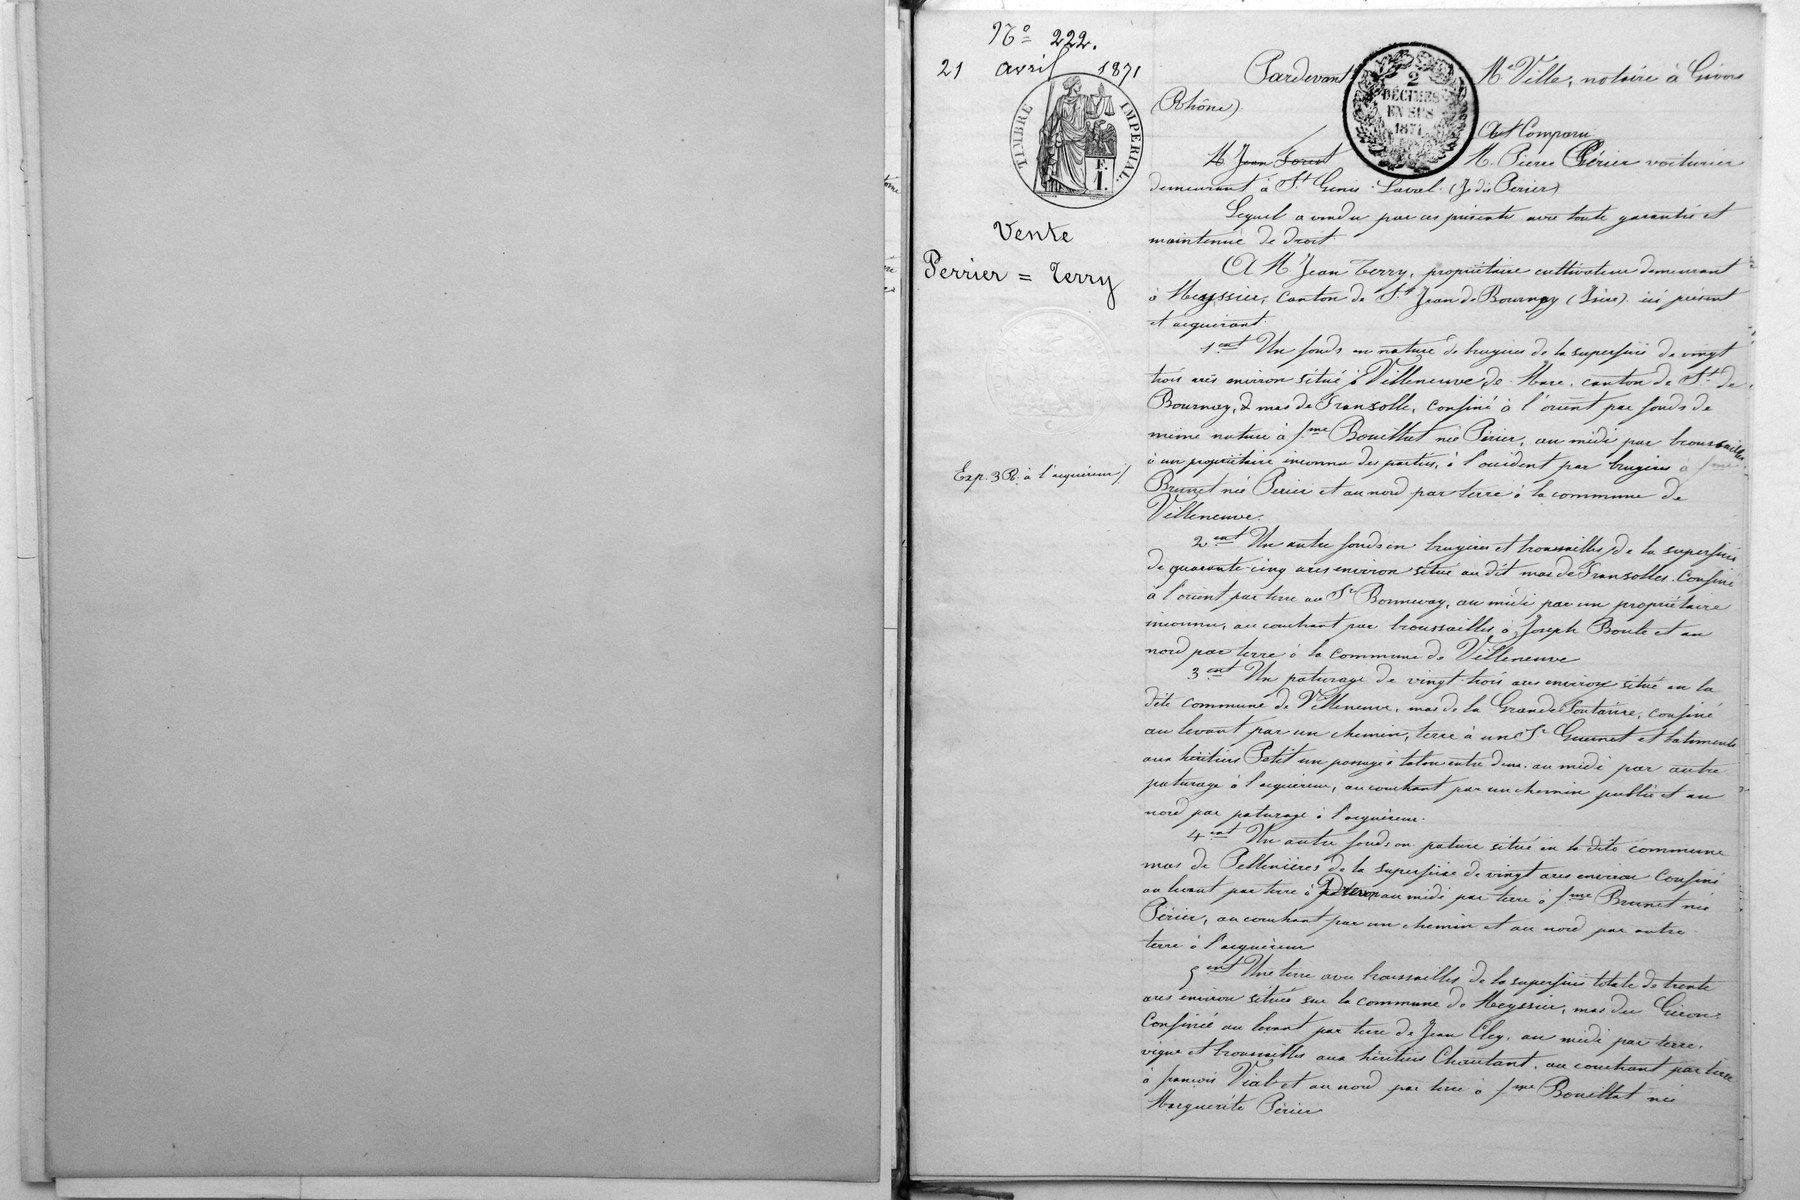 N° 222.
21 avril 1871
TIMBRE IMPERIAL
F.
1.
Vente
Perrier = Terry
Exp. 3 R. à l'acquéreur /
2
DÉCIMES
EN SUS
1871
Pardevant Me Ville, notaire à Givors
(Rhône)
A Comparu
M Jean Forest M. Pierre Périer voiturier
demeurant à St Genis-Laval. (J. dis Périer)
Lequel a vendu par ces présentes avec toute garantie et
maintenue de droit.
A M Jean Terry, propriétaire cultivateur demeurant
à Meyssier, canton de St Jean de Bournay (Isère) ici présent
et acquérant
1ent Un fonds en nature de bruyères de la superficie de vingt
trois ares environ situé à Villeneuve de Marc, canton de St de
Bournay, & mas de Fransolle, confiné à l'orient par fonds de
même nature à fme Bouillat née Périer, au midi par broussailles
à un propriétaire inconnu des parties, à l'occident par bruyères à fme
Brunet née Périer et au nord par terre à la commune de
Villeneuve.
2ent Un autre fonds en bruyères et broussailles de la superficie
de quarante-cinq ares environ situé au dit mas de Fransolles. Confiné
à l'orient par terre au Sr Bonnevay, au midi par un propriétaire
inconnu, au couchant par broussailles à Joseph Boule et au
nord par terre à la commune de Villeneuve
3ent Un paturage de vingt-trois ares environ situé en la
dite commune de Villeneuve, mas de la Grande Fontaine, confiné
au levant par un chemin, terre à un Sr Guinet et batiments
aux héritiers Petit un passage à talon entre deux. au midi par autre
paturage à l'acquéreur, au couchant par un chemin public et au
nord par paturage à l'acquéreur.
4ent Un autre fonds en pature situé en la dite commune
mas de Pellenières de la superficie de vingt ares environ confiné
au levant par terre à Drevon au midi par terre à fme Brunet née
Périer, au couchant par un chemin et au nord par autre
terre à l'acquéreur
5ent Une terre avec broussailles de la superficie totale de trente
ares environ située sur la commune de Meyssier, mas du Giron.
Confinée au levant par terre de Jean Cley, au midi par terre,
vigne et broussailles aux héritiers Chautant, au couchant par terre
à françois Vial et au nord par terre à fme Bouillat née
Marguerite Périer